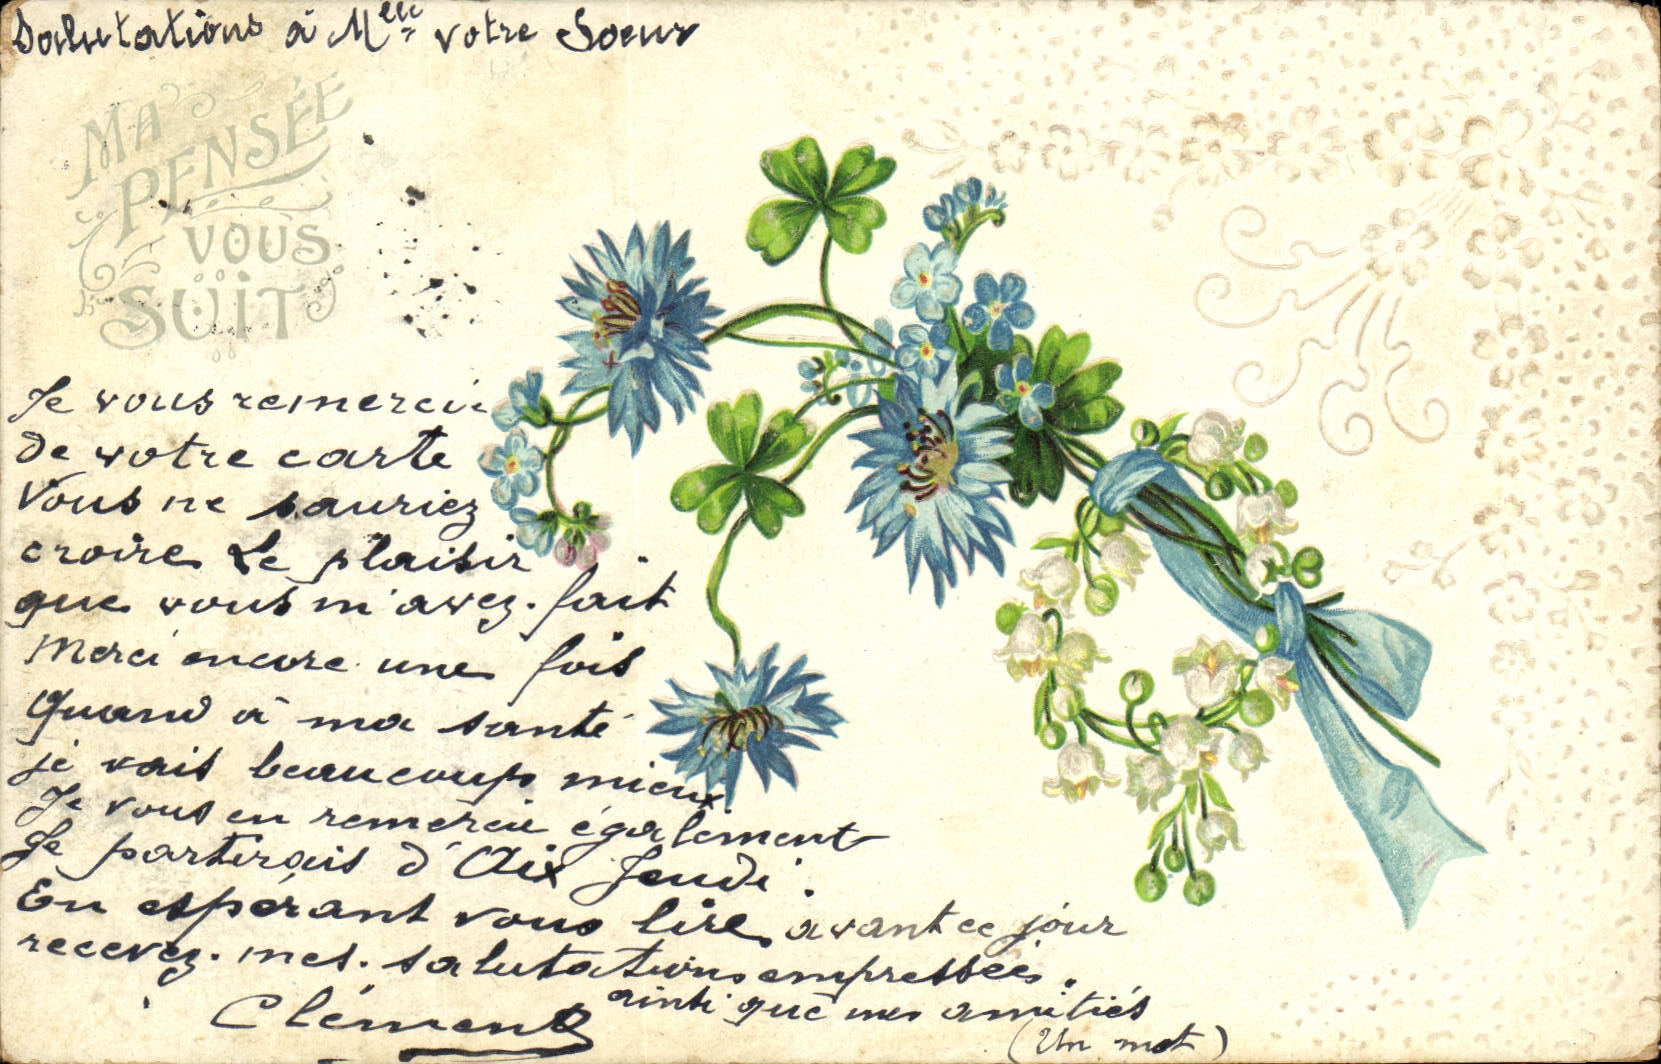 Salutations à Melle votre Soeur
MA
PENSÉE
VOUS
SUIT
Je vous remercie
de votre carte
Vous ne sauriez
croire le plaisir
que vous m'avez fait
Merci encore une fois
Quand à ma santé
je vais beaucoup mieux
Je vous en remercie également
Je partirais d'Aix Jeudi.
En espérant vous lire avant ce jour
recevez mes salutations empressées.
ainsi que mes amitiés
Clément
(Un mot)